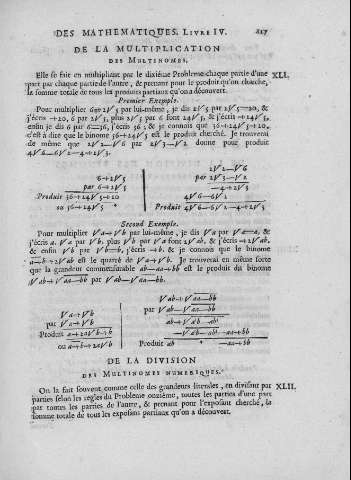 DES MATHEMATIQUES. LIVRE IV. 217
DE LA MULTIPLICATION
DES MULTINOMES.
Elle se fait en multipliant par le dixiéme Probleme chaque partie d'une XLI.
par chaque partie de l'autre, & prenant pour le produit qu'on cherche,
la somme totale de tous les produits partiaux qu'on a découvert.
Premier Exemple.
Pour multiplier 6+2√5 par lui-même, je dis 2√5 par 2√5=20, &
j'écris +20, 6 par 2√5, plus 2√5 par 6 font 24√5, & j'écris +24√5.
enfin je dis 6 par 6=36, j'écris 36; & je connois que 36+24√5+20.
c'est à dire que le binome 36+24√5 est le produit cherché. Je trouverai
de même que 2√2—√6 par 2√3—√2 donne pour produit
4√6—6√2—4+2√3.
2√2—√6
6+2√5 par 2√3—√2
par 6+2√5 —4+2√3
Produit 36+24√5+20 4√6—6√2
ou 56+24√5 Produit 4√6—6√2—4+2√3
Second Exemple.
Pour multiplier √a+√b par lui-même, je dis √a par √a=a, &
j'écris a. √a par √b, plus √b par √a font 2√ab, & j'écris +2√ab,
& enfin √b par √b=b, j'écris +b. & je connois que le binome
a+b+2√ab est le quarré de √a+√b. Je trouverai en même forte
que la grandeur commensurable ab—aa+bb est le produit du binome
√ab+√aa—bb par √ab—√aa—bb.
√ab+√aa—bb
√a+√b par √ab—√aa—bb
par √a+√b
Produit a+2√ab+b
ou a+b+2√ab Produit ab * —aa+bb
DE LA DIVISION
DES MULTINOMES NUMERIQUES.
On la fait souvent comme celle des grandeurs literales, en divisant par XLII.
parties selon les regles du Probleme onziéme, toutes les parties d'une part
par toutes les parties de l'autre, & prenant pour l'exposant cherché, la
somme totale de tous les exposans partiaux qu'on a découvert.